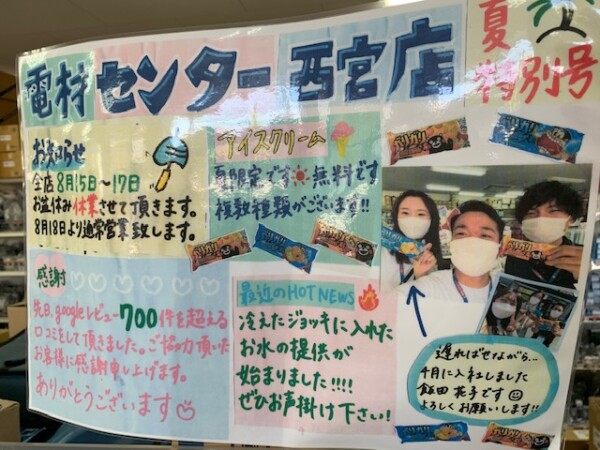 電材センター西宮店
夏
特別号
お知らせ
全店8月15日〜17日
お盆休み休業させて頂きます。
8月18日より通常営業致します。
アイスクリーム
夏限定です無料です
複数種類がございます!!
感謝
先日、googleレビュー700件を超える
口コミをして頂きました。ご協力頂いた
お客様に感謝申し上げます。
ありがとうございます
最近のHOT NEWS
冷えたジョッキに入れた
お水の提供が
始まりました!!!!
ぜひお声掛け下さい!
遅ればせながら...
4月に入社しました
飯田 花子です
よろしくお願いします!!
ガリガリ
ガリガリ
ガリガリ
ガリガリ
ガリガリ